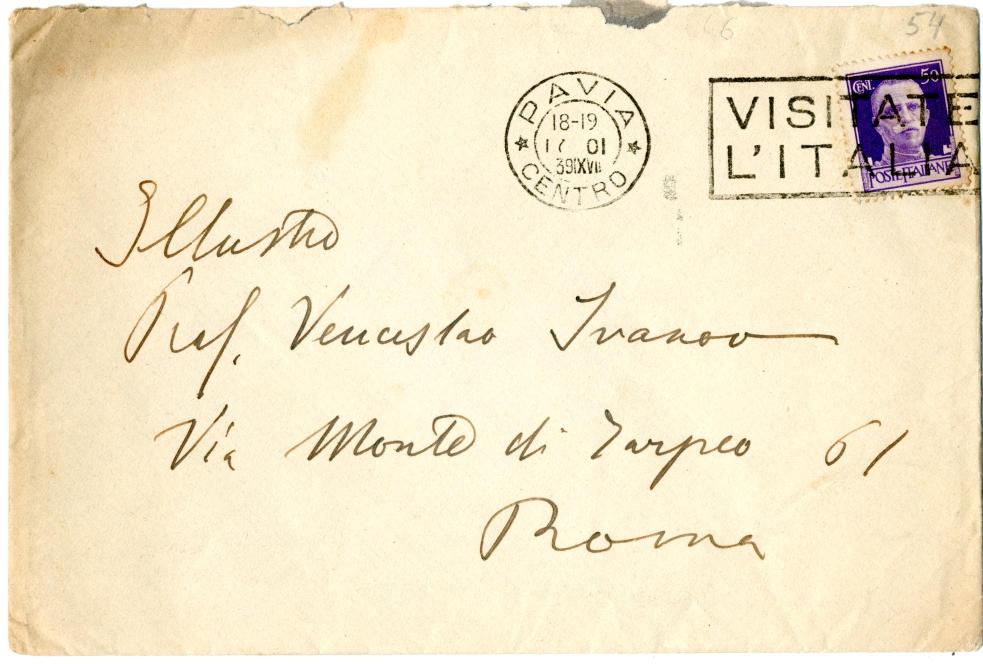 54
66
PAVIA
18-19
17 01
39 XVII
CENTRO
VISITATE
L'ITALIA
CENT. 50
POSTE ITALIANE
Illustre
Prof. Venceslao Ivanov
Via Monte di Tarpeo 61
Roma